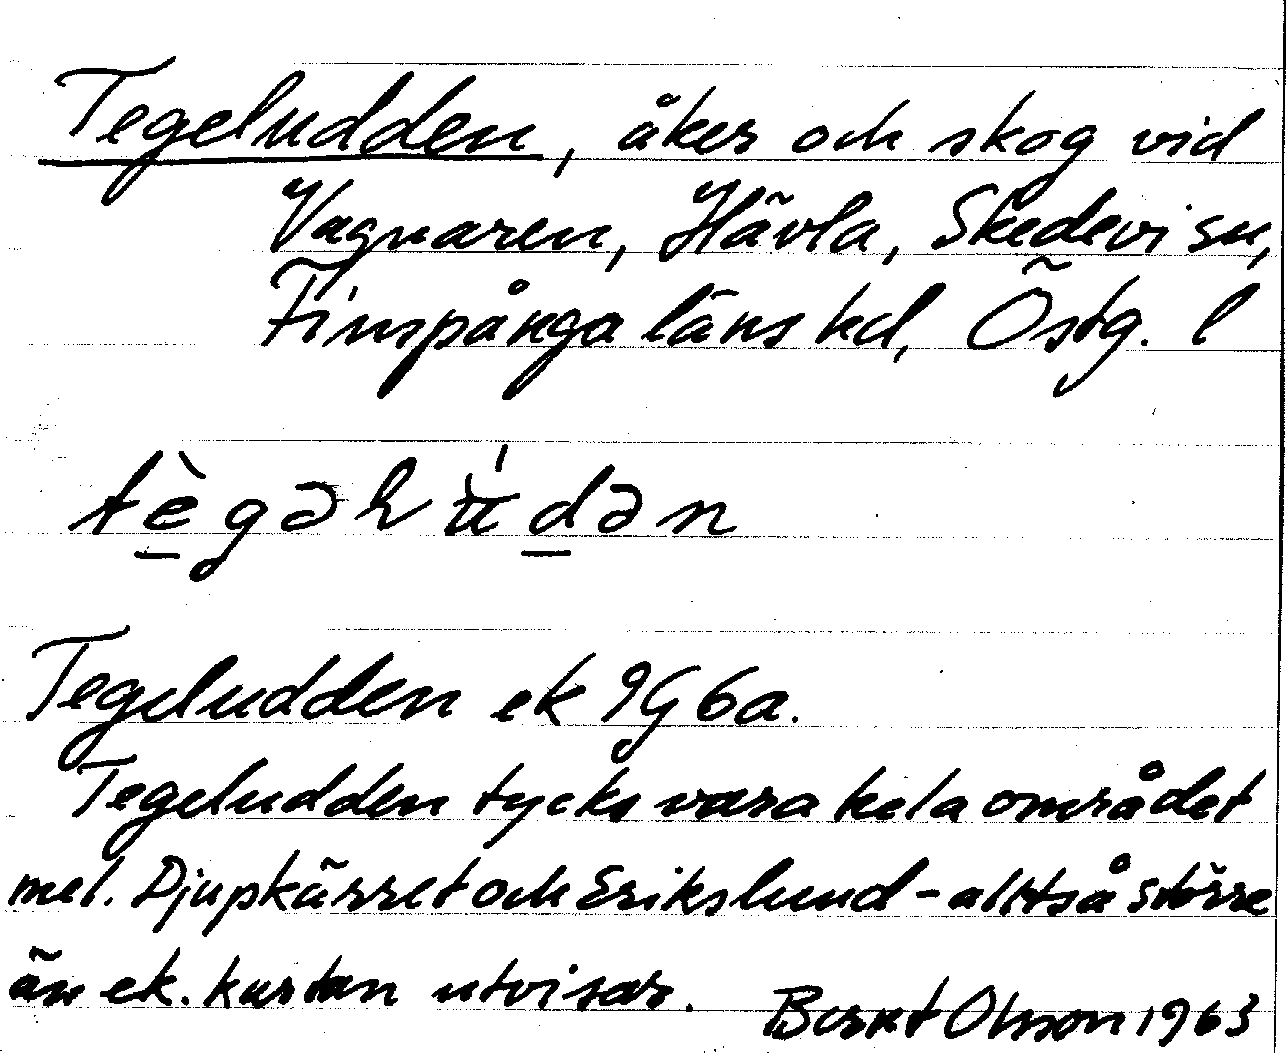 Tegeludden, åker och skog vid
Vagnaren, Hävla, Skedevi sn,
Finspånga läns hd, Östg. l
tègəl dən
Tegeludden ek 9G 6a.
Tegeludden tycks vara hela området
mel. Djupkärret och Erikslund - alltså större
än ek. kartan utvisar.
Bernt Olsson 1963